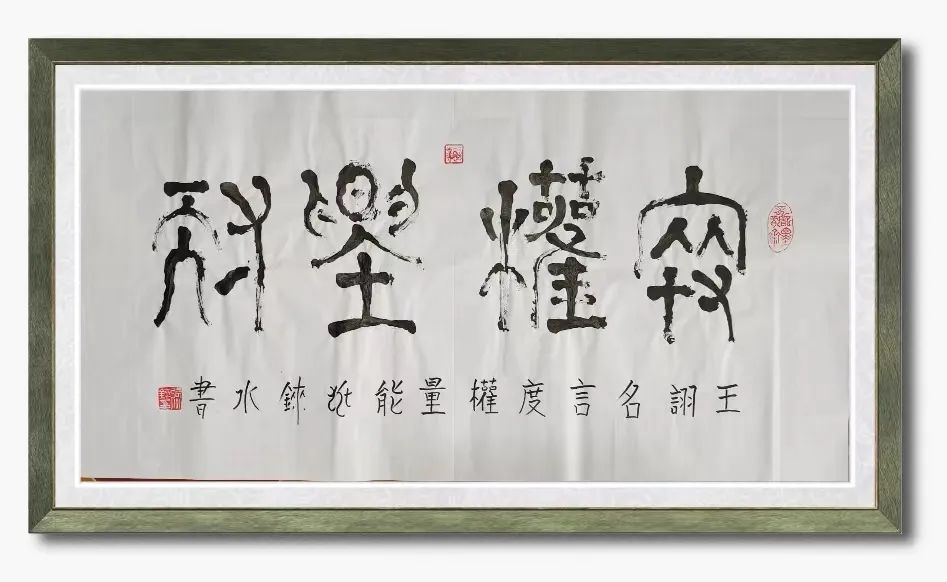 度權量能
王詡名言度權量能水書